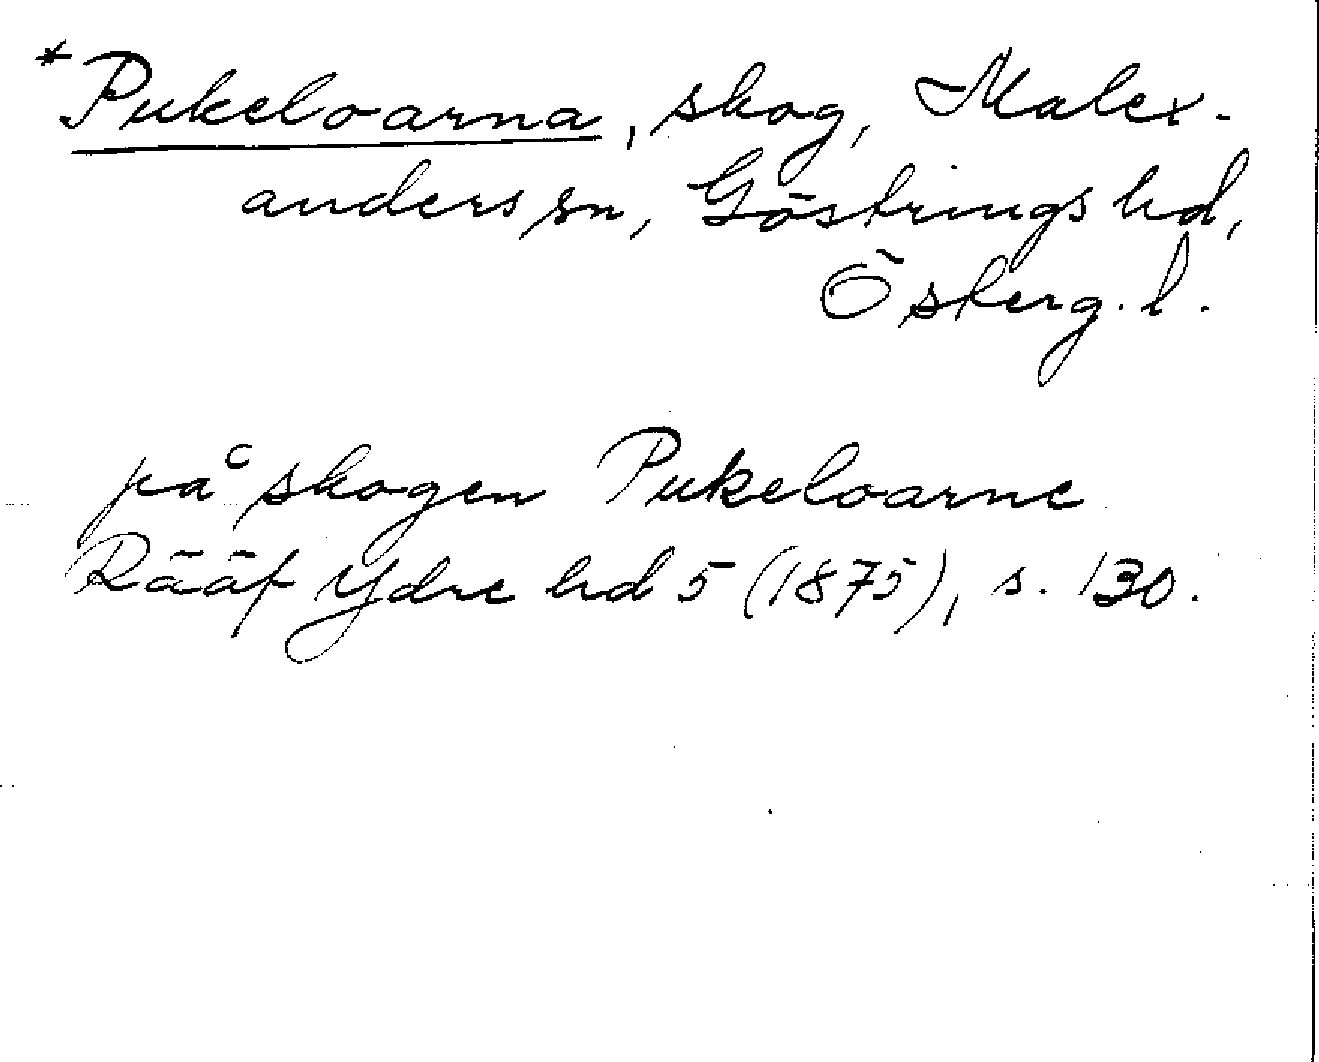 *Pukeloarna, skog, Malex-
anders sn, Göstrings hd,
Österg. l.
på skogen Pukeloarne
Rääf Ydre hd 5 (1875), s. 130.